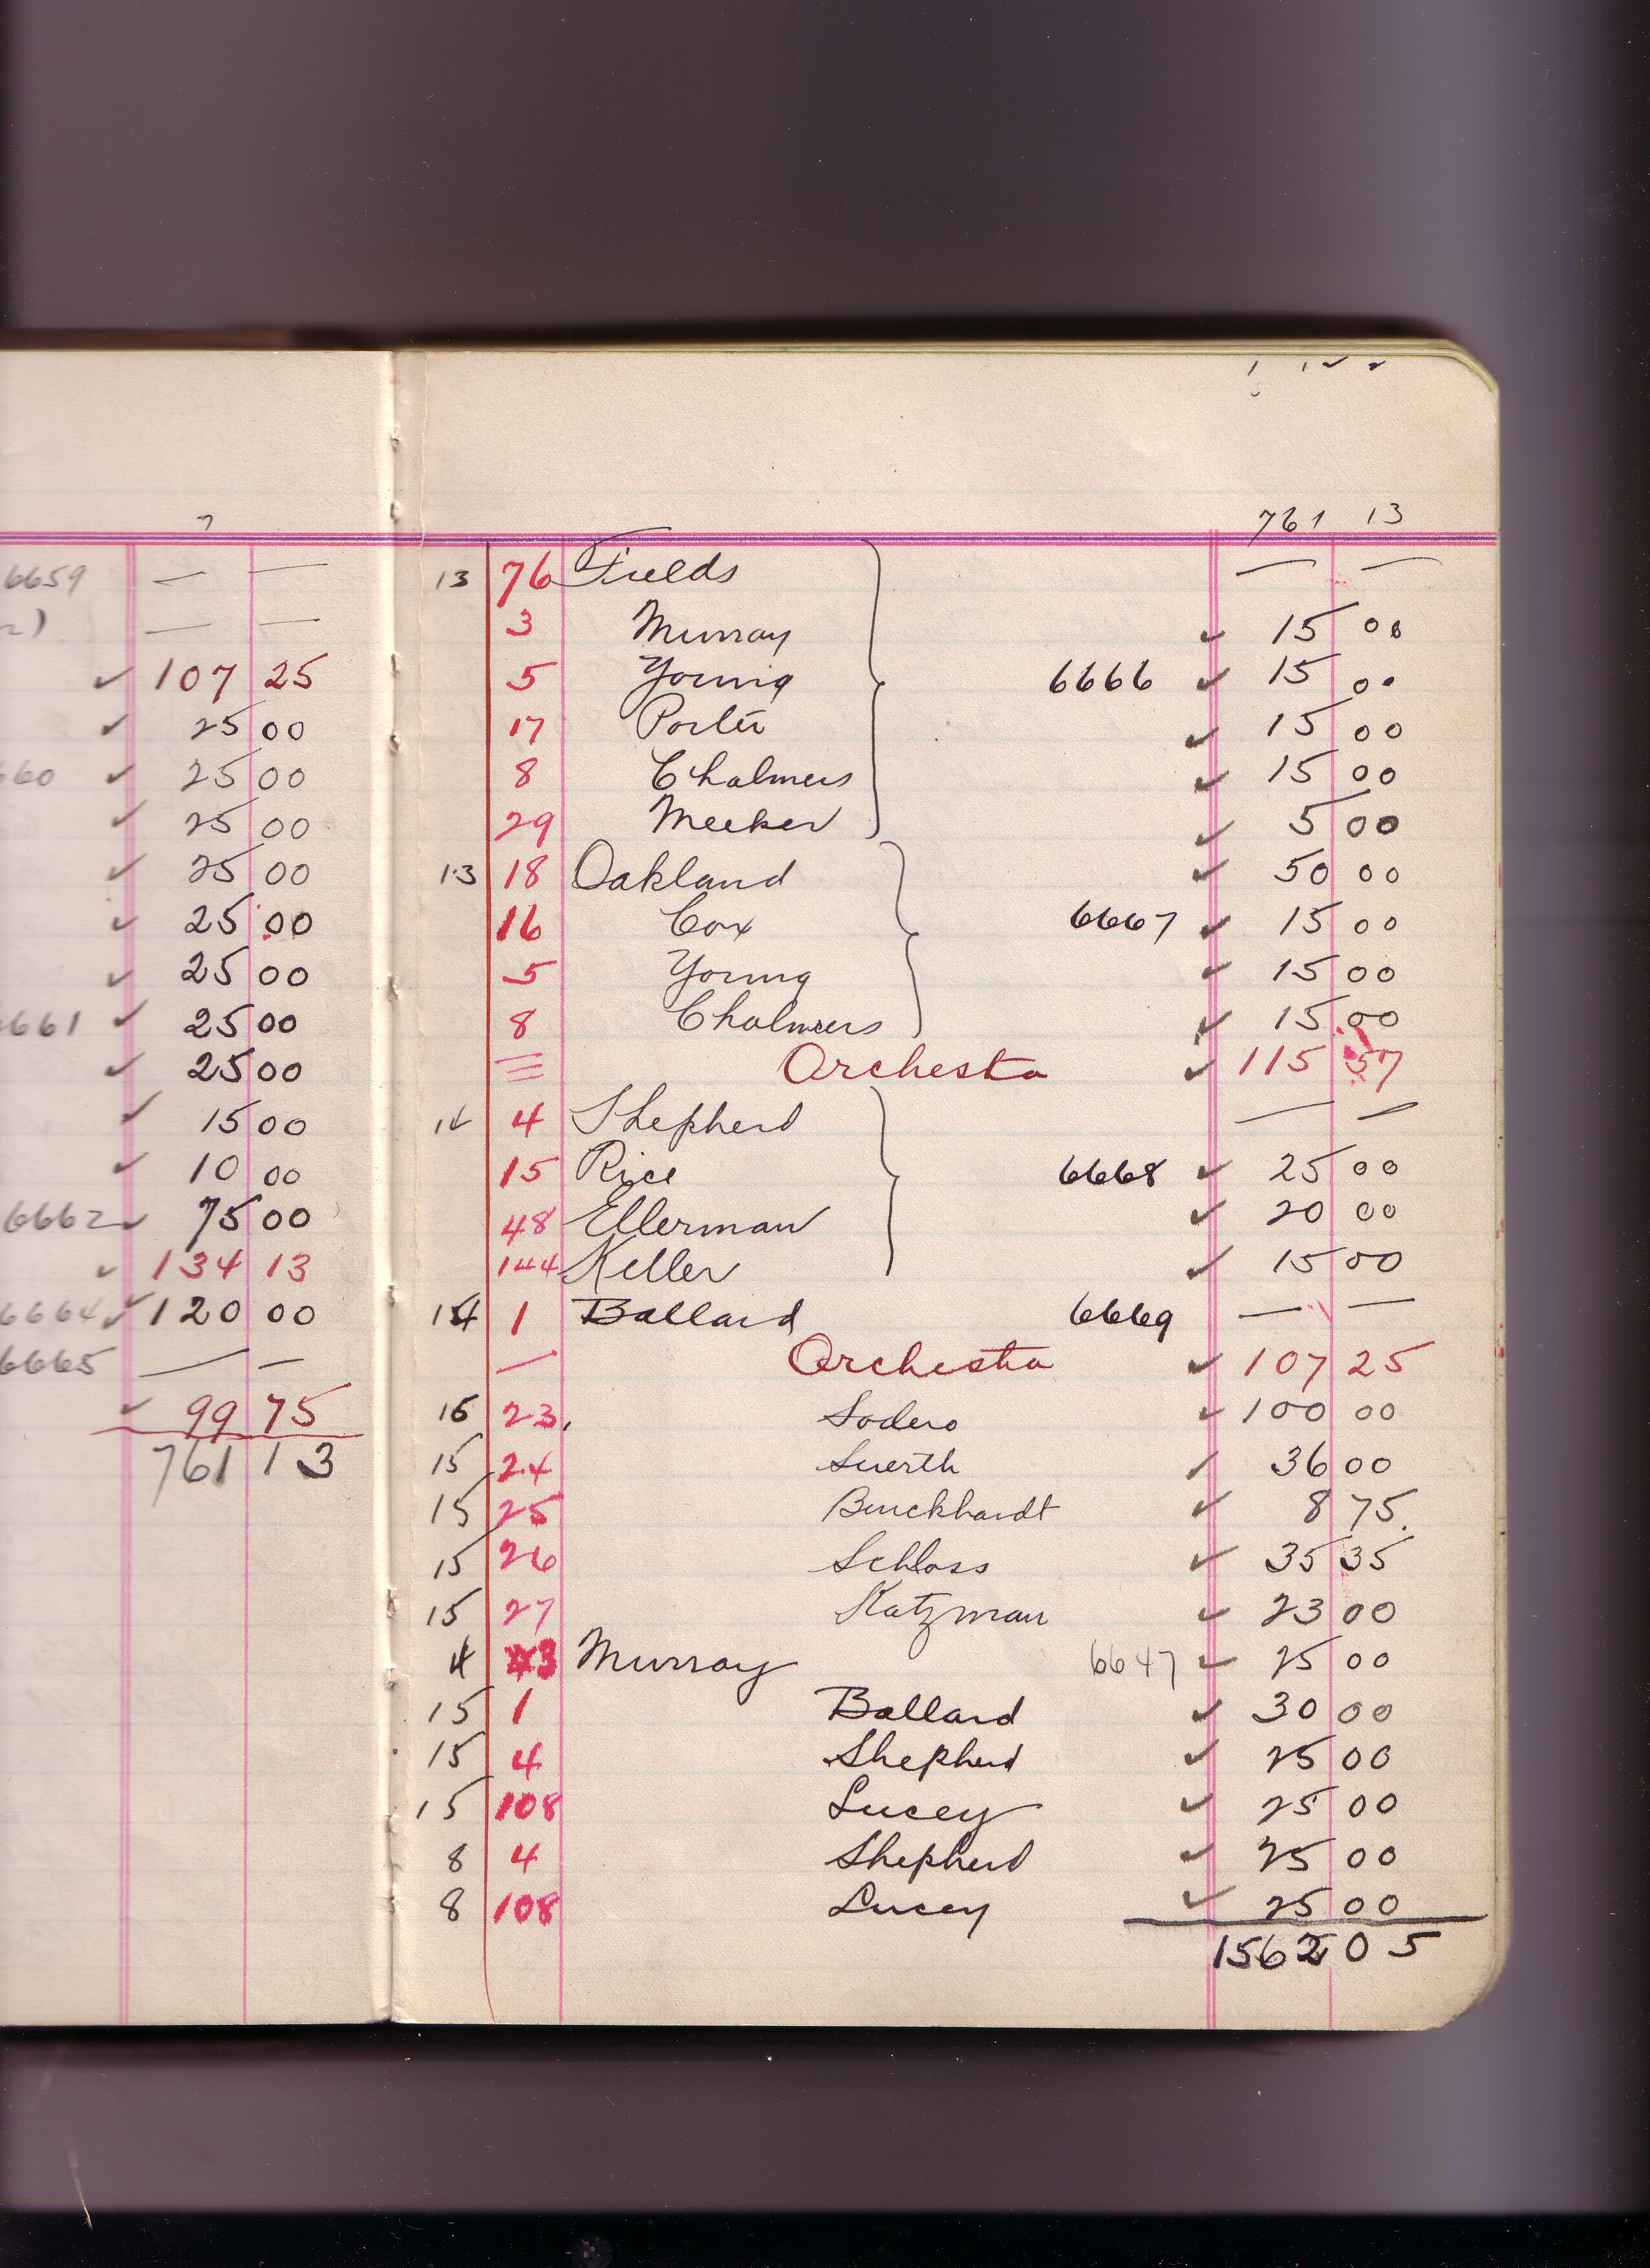 7
6659 — —
— —
✓ 107 25
✓ 25 00
660 ✓ 25 00
✓ 25 00
✓ 25 00
✓ 25 00
✓ 25 00
6661 ✓ 25 00
✓ 25 00
✓ 15 00
✓ 10 00
6662 ✓ 75 00
✓ 134 13
6664 ✓ 120 00
6665 — —
✓ 99 75
761 13
761 13
13 76 Fields — —
3 Murray ✓ 15 00
5 Young 6666 ✓ 15 00
17 Porter ✓ 15 00
8 Chalmers ✓ 15 00
29 Meeker ✓ 5 00
13 18 Oakland ✓ 50 00
16 Cox 6667 ✓ 15 00
5 Young ✓ 15 00
8 Chalmers ✓ 15 00
Orchesta ✓ 115 57
14 4 Shepherd — —
15 Rice 6668 ✓ 25 00
48 Ellerman ✓ 20 00
144 Keller ✓ 15 00
14 1 Ballard 6669 — —
— Orchesta ✓ 107 25
15 23 Sodero ✓ 100 00
15 24 Suerth ✓ 36 00
15 25 Burckhardt ✓ 8 75
15 26 Schloss ✓ 35 35
15 27 Katzman ✓ 23 00
4 3 Murray 6647 ✓ 25 00
15 1 Ballard ✓ 30 00
15 4 Shepherd ✓ 25 00
15 108 Lucey ✓ 25 00
8 4 Shepherd ✓ 25 00
8 108 Lucey ✓ 25 00
1562 05